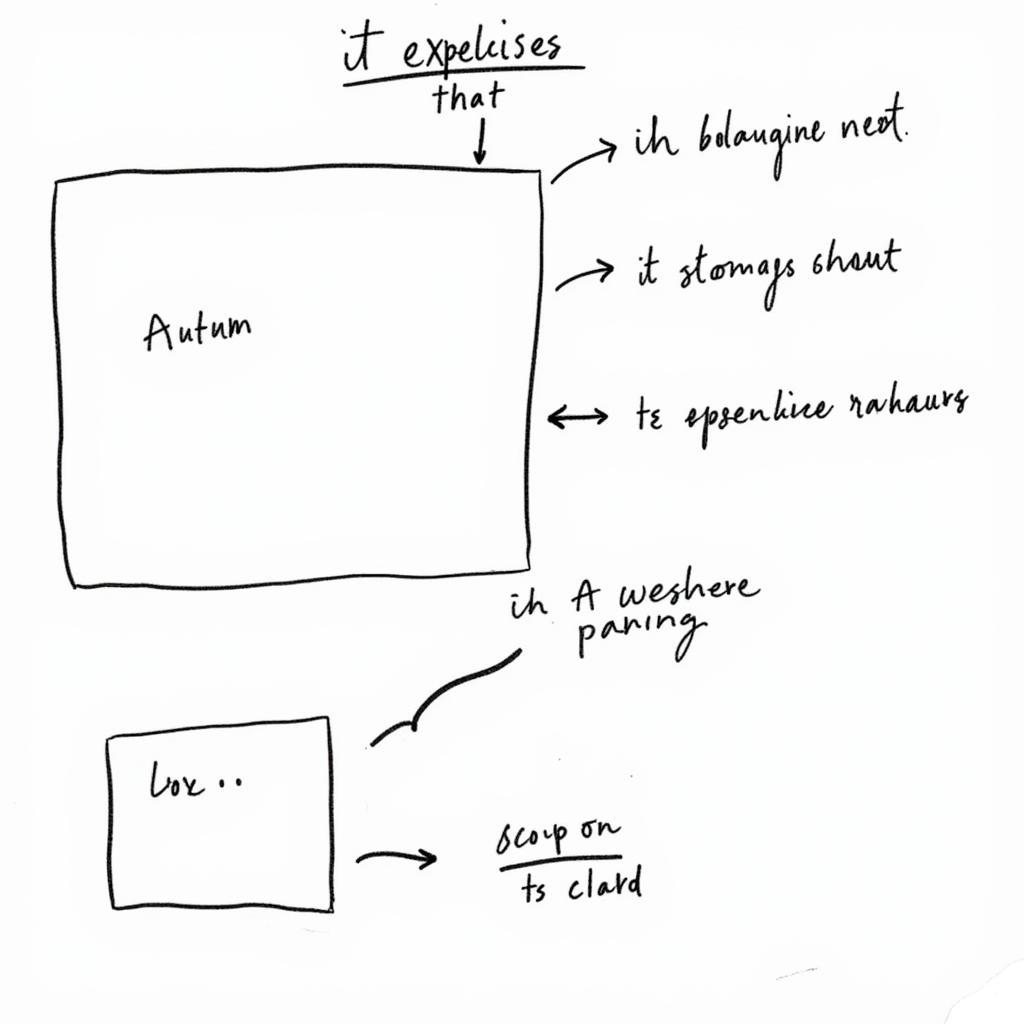 it expelcises
that
ih bolaugine neot.
it stomags shout
Autum
ts epsenlice rahaurs
ih A weshere
paning
Lox..
scoup on
ts clard